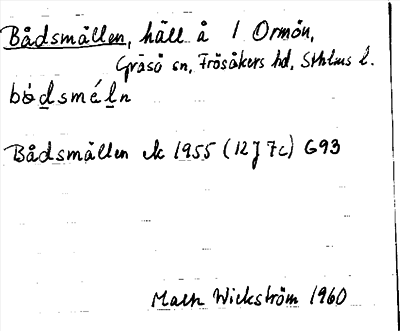 Bådsmällen, häll å 1 Ormön,
Gräsö sn, Frösåkers hd, Sthlms l.
bó̱dsméḻn
Bådsmällen ek 1955 (12J 7c) G93
Mats Wickström 1960